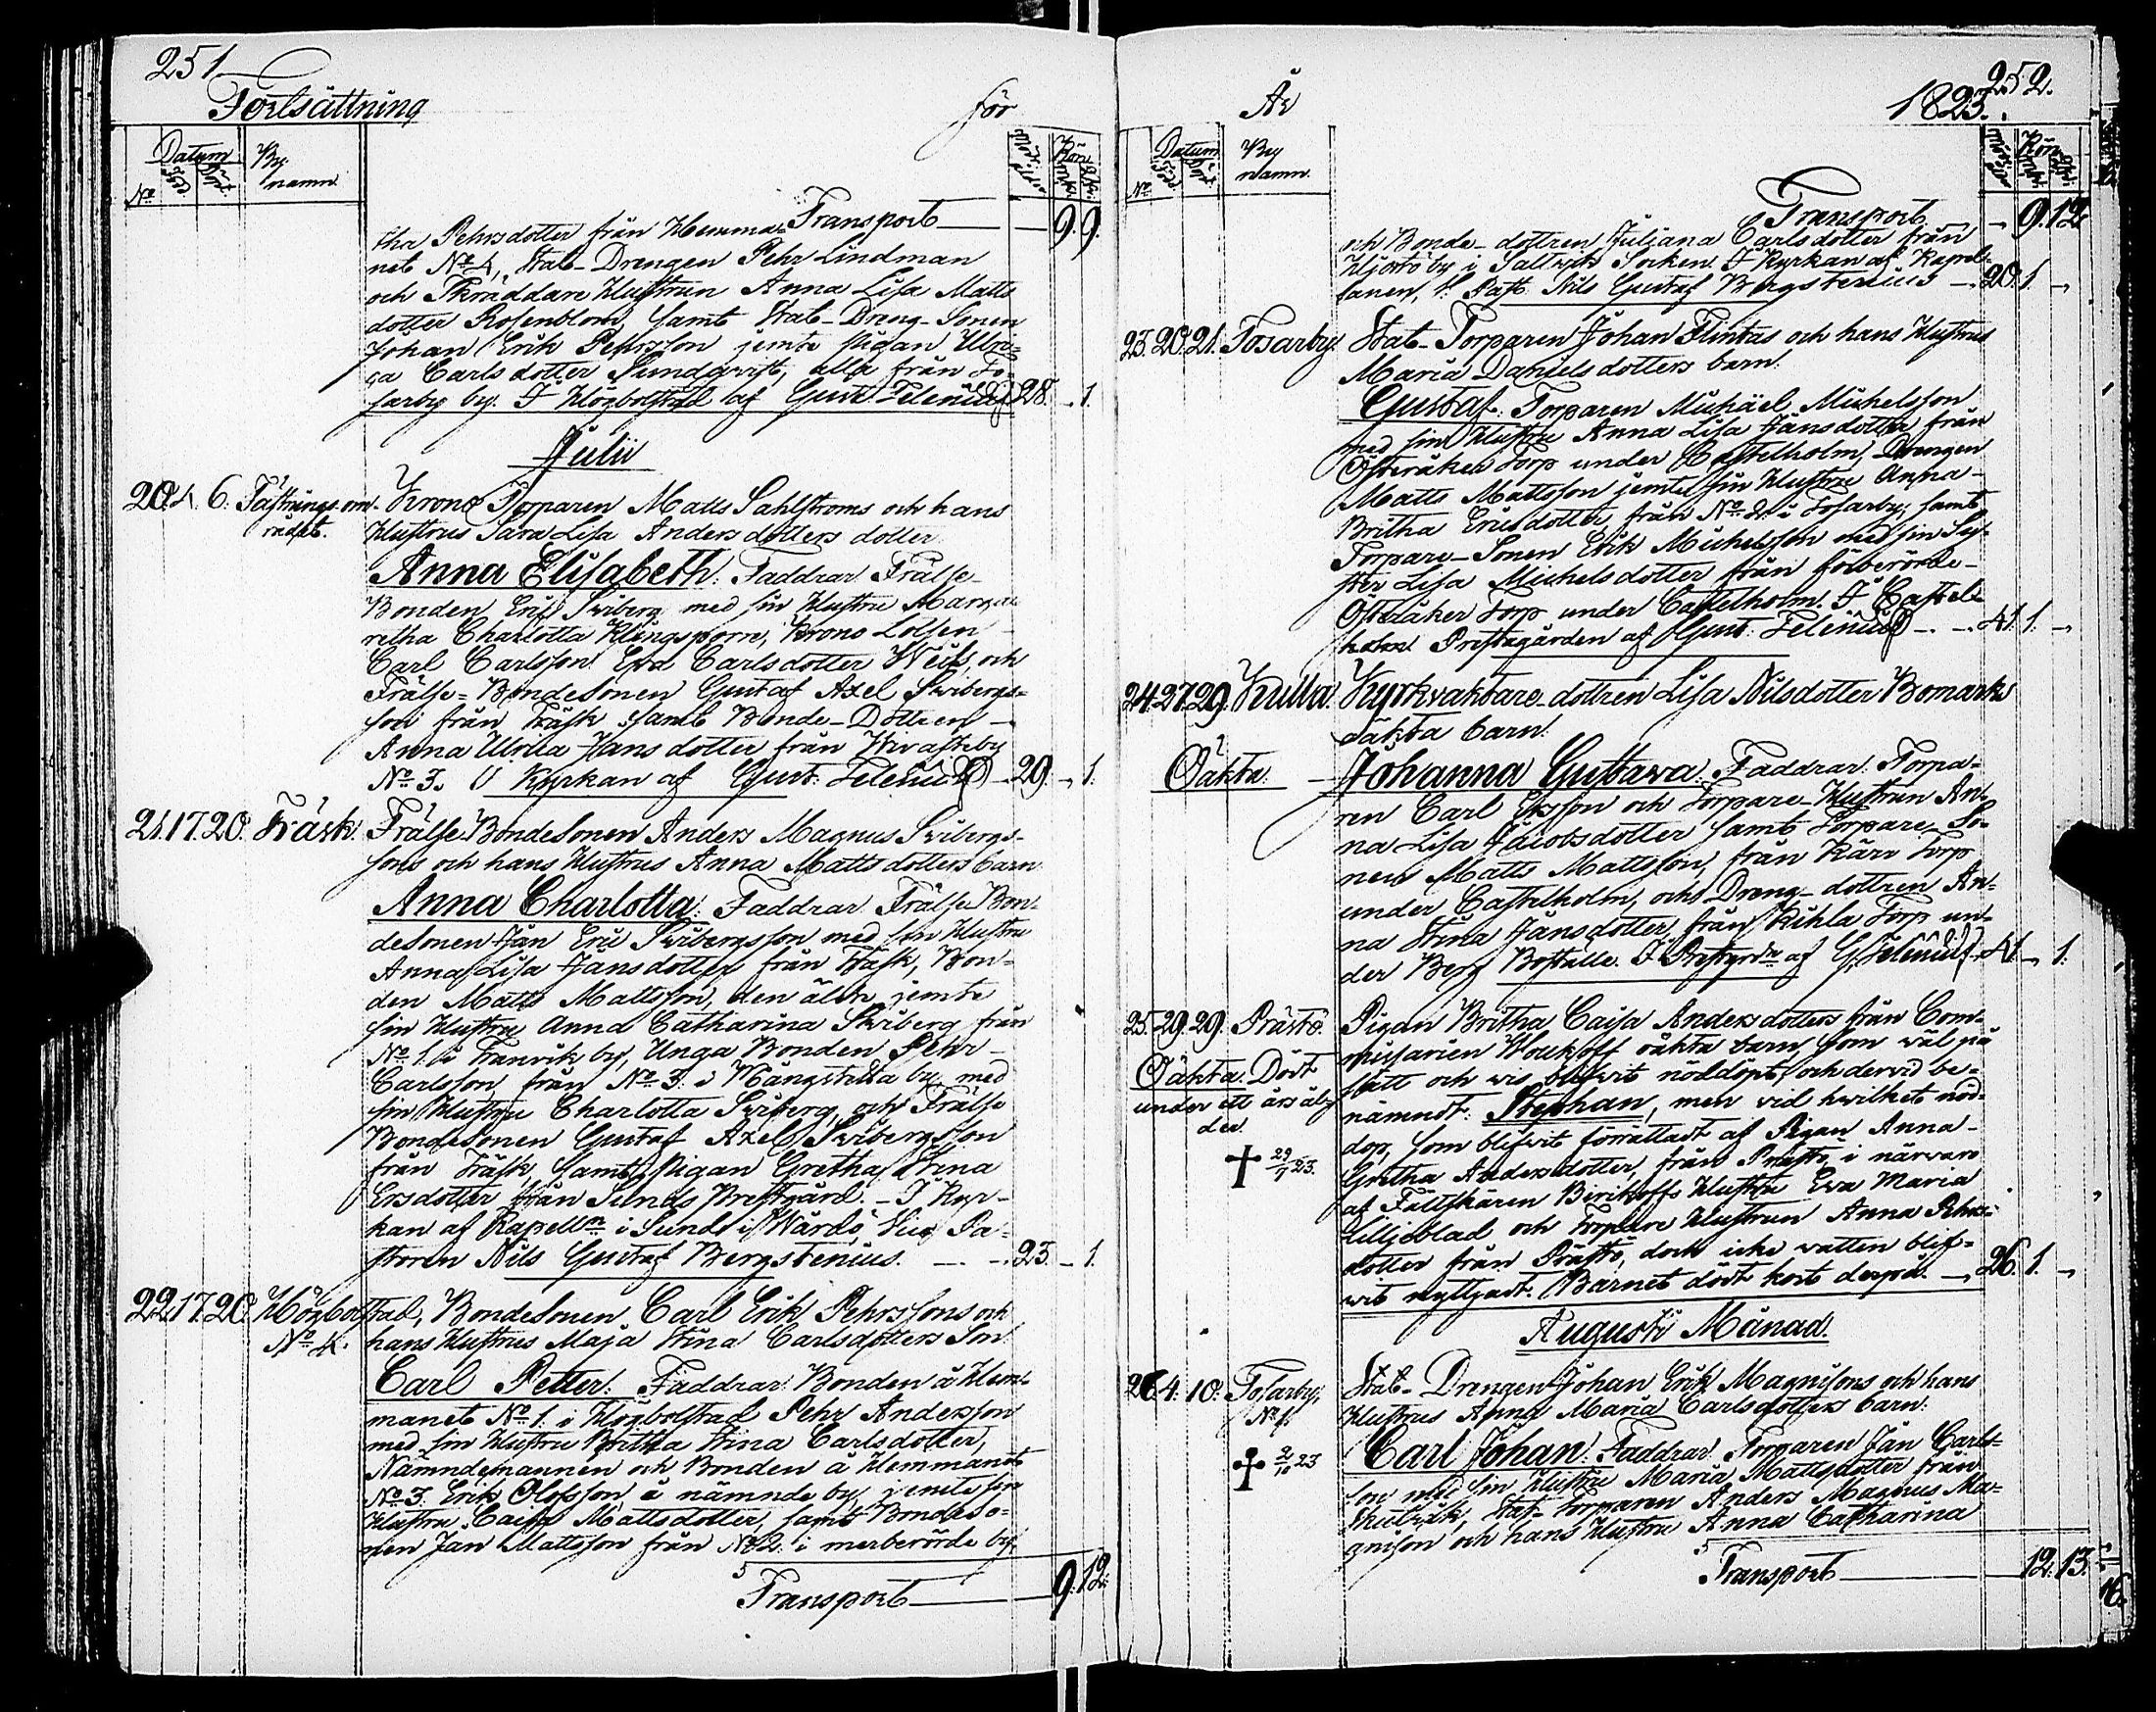 251
Fortsättning för
Datum
By namn
Nº
Transport 9. 9.
tha Pehrsdotter från Hemma-
net Nº 4, Stat-Drengen Pehr Lindman
och Skräddare Hustrun Anna Lisa Matts
dotter Rosenblom, samt Stat-Dreng-Sonen
Johan Erik Pehrsson jemte pigan Ulri-
ca Carlsdotter Sundqwist, alla från To-
sarby by. I Högbolstad af Gust: Felenius 28. 1.
Julii
20. 4. 6. Fästnings om-
rådet.
Krono Torparen Matts Sahlstroms och hans
Hustrus Sara Lisa Andersdotters dotter
Anna Elisabeth: Faddrar Frälse-
Bonden Eric Swiberg med sin Hustru Marga-
retha Charlotta Klingsporre, Krono Lotsen
Carl Carlsson Eva Carlsdotter och
Frälse-BondeSonen Gustaf Axel Swibergs-
son från Träsk samt Bonde-Dottren
Anna Ulrica Jansdotter från
Nº 3. Kyrkan af Gust: Felenius 29. 1.
21. 17. 20. Träsk.
Frälse BondeSonen Anders Magnus Swibergs-
sons och hans Hustrus Anna Mattsdotters barn
Anna Charlotta: Faddrar Frälse Bon-
deSonen Jan Eric Swibergsson med sin Hustru
Anna Lisa Jansdotter från Träsk, Bon-
den Matts Mattsson, den äldre jemte
sin Hustru Anna Catharina Swiberg från
Nº 1. i Tranvik by, Unga Bonden Pehr
Carlsson från Nº 3. i Mångstekta by med
sin Hustru Charlotta Swiberg, och Frälse
BondeSonen Gustaf Axel Swibergsson
från Träsk, samt Pigan Gretha Stina
Ersdotter från Sunds Prestgård. I Kyr-
kan af Kapelln i Sund i Wårdö, Vice Pa-
storen Nils Gustaf Bergstenius. 23. 1.
22. 17. 20. Högbolstad,
Nº 4.
BondeSonen Carl Erik Pehrssons och
hans Hustrus Maja Stina Carlsdotters Son
Carl Petter: Faddrar Bonden å Hem-
manet Nº 1. i Högbolstad Pehr Andersson
med sin Hustru Britha Stina Carlsdotter,
Nämndemannen och Bonden å Hemmanet
Nº 3. Erik Olofsson å nämnde by jemte sin
Hustru Caisa Mattsdotter, samt BondeSo-
nen Jan Mattsson från Nº 2. i merberörde by
Transport 9. 12.
252.
År 1823.
Datum
By namn.
Nº
Transport 9. 12
och Bonde-dottren Juliana Carlsdotter från
Hjortö by i Saltwik Socken. I Kyrkan af Kapel-
lanen, V. Past: Nils Gustaf Bergstenius 20. 1.
23. 20. 21. Tosarby.
Stat-Torparen Johan Flintas och hans Hustrus
Maria Danielsdotters barn.
Gustaf: Torparen Michäel Michelsson
med sin Hustru Anna Lisa Jansdotter från
Österåker Torp under Castelholm, Drengen
Matts Mattsson jemte sin Hustru Anna
Britha Ericsdotter, från Nº 2. i Tosarby, samt
Torpare-Sonen Erik Michelsson med sin Sy-
ster Lisa Michelsdotter från förberörde
Österåker Torp under Castelholm. I Castel-
holms Prestagården af Gust: Felenius 41. 1.
24. 27. 29. Kulla.
Kyrkvaktare-dottren Lisa Nilsdotter Bomarks
oäkta barn.
Oäkta.
Johanna Gustawa: Faddrar: Torpa-
ren Carl Ersson och Torpare-Hustrun An-
na Lisa Jacobsdotter samt Torpare So-
nen Matts Mattsson, från Kärr Torp
under Castelholm, och Dreng-dottren An-
na Stina Jansdotter, från Kihla Torp un-
der Berg Boställe. I Prestgdn af G. Felenius 41. 1.
25. 29. 29. Prästö.
Oäkta. Dödt
under ett års ål-
der.
29/7 23.
Pigan Britha Caisa Andersdotters från Com-
missarien oäkta barn, som wäl på
sätt och wis blifwit nöddöpt, och dervid be-
nämndt: Stephan, men vid hwilket nöd-
dop, som blifwit förrättadt af Pigan Anna
Gretha Andersdotter, från Prästö i närwaro
af Fältskären Birikoffs Hustru Eva Maria
Lilljeblad och Torpare Hustrun Anna Pehrs-
dotter från Prästö, dock icke vatten blif-
wit nyttjadt. Barnet dödt kort derpå. 26. 1.
Augusti Månad.
26. 4. 10. Tosarby,
Nº 1.
2/10 23
Stat-Drengen Johan Erik Magnisons och hans
Hustrus Anna Maria Carlsdotters barn.
Carl Johan: Faddrar Torparen Jan Carls-
son med sin Hustru Maria Mattsdotter från
Stat-Torparen Anders Magnus Ma-
gnison och hans Hustru Anna Catharina
Transport 12. 13.